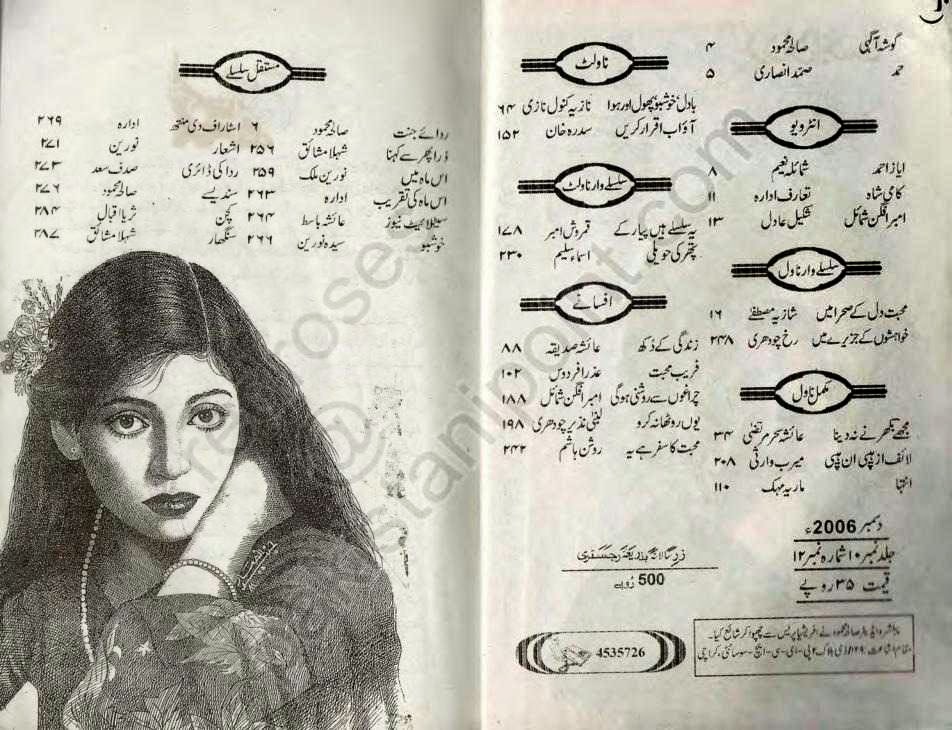 گوشۂ آگہی صالحہ محمود ۴
حمد صمد انصاری ۵
انٹرویو
ایاز احمد شمائلہ نعیم ۸
کامی شاہ تعارف ادارہ ۱۱
امبر افگن شمائل شکیل عادل ۱۳
سلسلے وار ناول
محبت دل کے صحرا میں شازیہ مصطفےٰ ۱۶
خواہشوں کے جزیرے میں رخ چودھری ۲۴۸
مکمل ناول
مجھے بکھرنے نہ دینا عائشہ سحر مرتضیٰ ۳۴
لائف از ہیپی ان ہیپی میرب وارثی ۲۰۸
انتہا ماریہ مہک ۱۱۰
دسمبر 2006ء
جلد نمبر ۱۰ شمارہ نمبر ۱۲
قیمت ۳۵ روپے
ناولٹ
بادل، خوشبو، پھول اور ہوا نازیہ کنول نازی ۶۴
آؤ اب اقرار کریں سدرہ خان ۱۵۲
سلسلے وار ناولٹ
یہ سلسلے ہیں پیار کے قمروش امبر ۱۷۸
پتھر کی حویلی اسماء سلیم ۲۳۰
افسانے
زندگی کے دکھ عائشہ صدیقہ ۸۸
فریب محبت عذرا فردوس ۱۰۲
چراغوں سے روشنی ہوگی امبر افگن شمائل ۱۸۸
یوں روٹھا نہ کرو لبنیٰ نذیر چودھری ۱۹۸
محبت کا سفر ہے یہ روشن ہاشم ۲۴۲
زر سالانہ بذریعہ رجسٹری
500 روپے
پبلشر و ایڈیٹر صالحہ محمود نے افریشیا پریس سے چھپوا کر شائع کیا۔
مقام اشاعت: بلاک ۲ پی-ای-سی-ایچ-سوسائٹی، کراچی
4535726
مستقل سلسلے
ردائے جنت صالحہ محمود ۶ اسٹار آف دی منتھ ادارہ ۲۶۹
ذرا پھر سے کہنا شہلا مشتاق ۲۵۶ اشعار نورین ۲۷۱
اس ماہ میں نورین ملک ۲۵۹ ردا کی ڈائری صدف سعد ۲۷۳
اس ماہ کی تقریب ادارہ ۲۶۳ سندیسے صالحہ محمود ۲۷۶
سیٹلائیٹ نیوز عائشہ باسط ۲۶۴ کچن ثریا اقبال ۲۸۴
خوشبو سیدہ نورین ۲۶۶ سنگھار شہلا مشتاق ۲۸۷